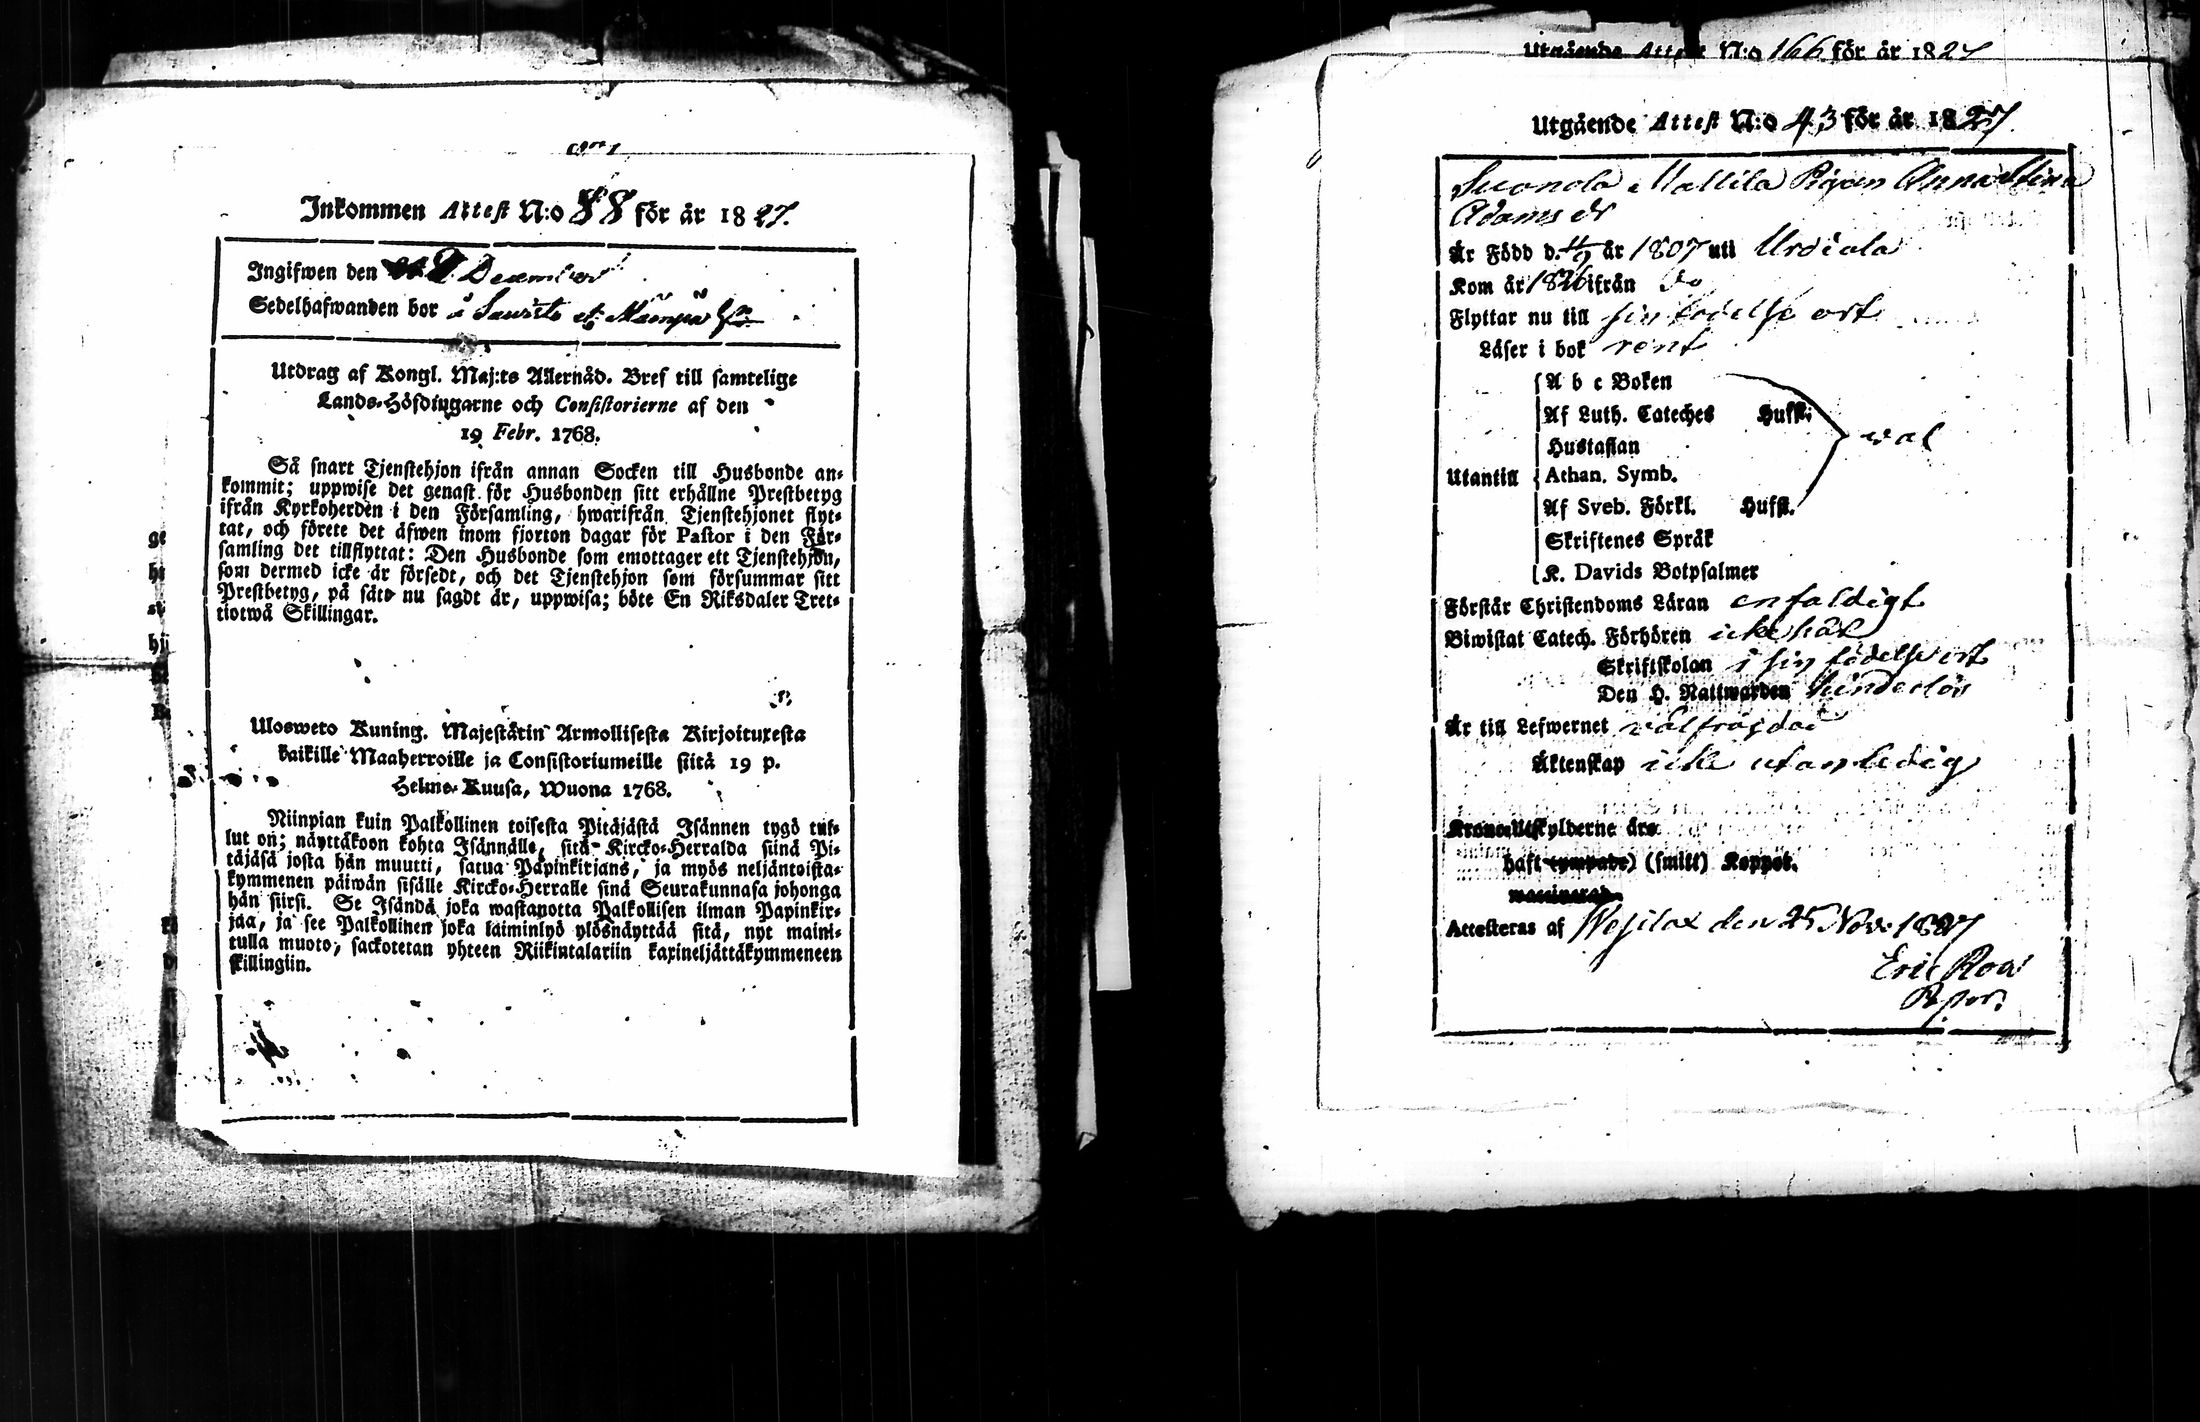 Inkommen Attest N:o 88 för år 1827.
Ingifwen den 2 December
Sedelhafwanden bor å
Utdrag af Kongl. Maj:ts Allernåd. Bref till samtelige
Lands-Höfdingarne och Consistorierne af den
19 Febr. 1768.
Så snart Tjenstehjon ifrån annan Socken till Husbonde an-
kommit; uppwise det genast för Husbonden sitt erhållne Prestbetyg
ifrån Kyrkoherden i den Församling, hwarifrån Tjenstehjonet flyt-
tat, och förete det äfwen inom fjorton dagar för Pastor i den För-
samling det tillflyttat: Den Husbonde som emottager ett Tjenstehjon,
som dermed icke är försedt, och det Tjenstehjon som försummar sitt
Prestbetyg, på sätt nu sagdt är, uppwisa; böte En Riksdaler Tret-
tiotwå Skillingar.
Ulosweto Kuning. Majestätin Armollisesta Kirjoituxesta
kaikille Maaherroille ja Consistoriumeille siitä 19 p.
Helme-Kuusa, Wuona 1768.
Niinpian kuin Palkollinen toisesta Pitäjästä Isännen tygö tul-
lut on; näyttäkoon kohta Isännälle, sitä Kircko-Herralda siinä Pi-
täjäsä josta hän muutti, saatua Papinkirjans, ja myös neljäntoista-
kymmenen päiwän sisälle Kircko-Herralle siinä Seurakunnasa johonga
hän siirsi. Se Isändä joka wastanotta Palkollisen ilman Papinkir-
jaa, ja see Palkollinen joka laiminlyö ylösnäyttää sitä, nyt maini-
tulla muoto, sackotetan yhteen Riikintalariin kaxineljättäkymmeneen
skillingiin.
Utgående Attest N:o 166 för år 1827
Utgående Attest N:o 43 för år 1827.
Suonola Mattila Pigan Anna Stina
Adams dr
Är Född d. 11/9 år 1807 uti Urdiala
Kom år 1826 ifrån do
Flyttar nu till sin födelse ort
Läser i bok rent
A b c Boken
Af Luth. Cateches Hufst:
Hustaflan
wäl
Utantill Athan. Symb.
Af Sveb. Förkl. Hufst.
Skriftenes Språk
K. Davids Botpsalmer
Förstår Christendoms Läran enfaldigt
Biwistat Catech. Förhören icke här
Skriftskolan i sin födelse ort
Den H. Nattwarden hinderlös
Är till Lefwernet välfräjdad
Äktenskap icke utan ledig
Kronoutskylderne års
haft (smitt) Koppor.
Attesteras af Wesilax den 25 Nov: 1827
Eric